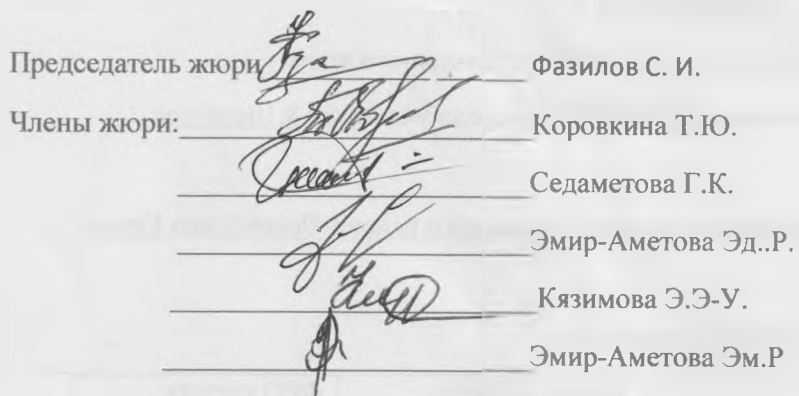 Председатель жюри Фазилов С. И.
Члены жюри: Коровкина Т.Ю.
Седаметова Г.К.
Эмир-Аметова Эд..Р.
Кязимова Э.Э-У.
Эмир-Аметова Эм.Р